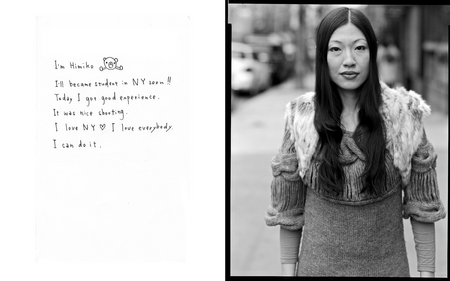 I'm Himiko
I'll became student in NY soon!!
Today I got good experience.
It was nice shooting.
I love NY ♡ I love everybody.
I can do it.